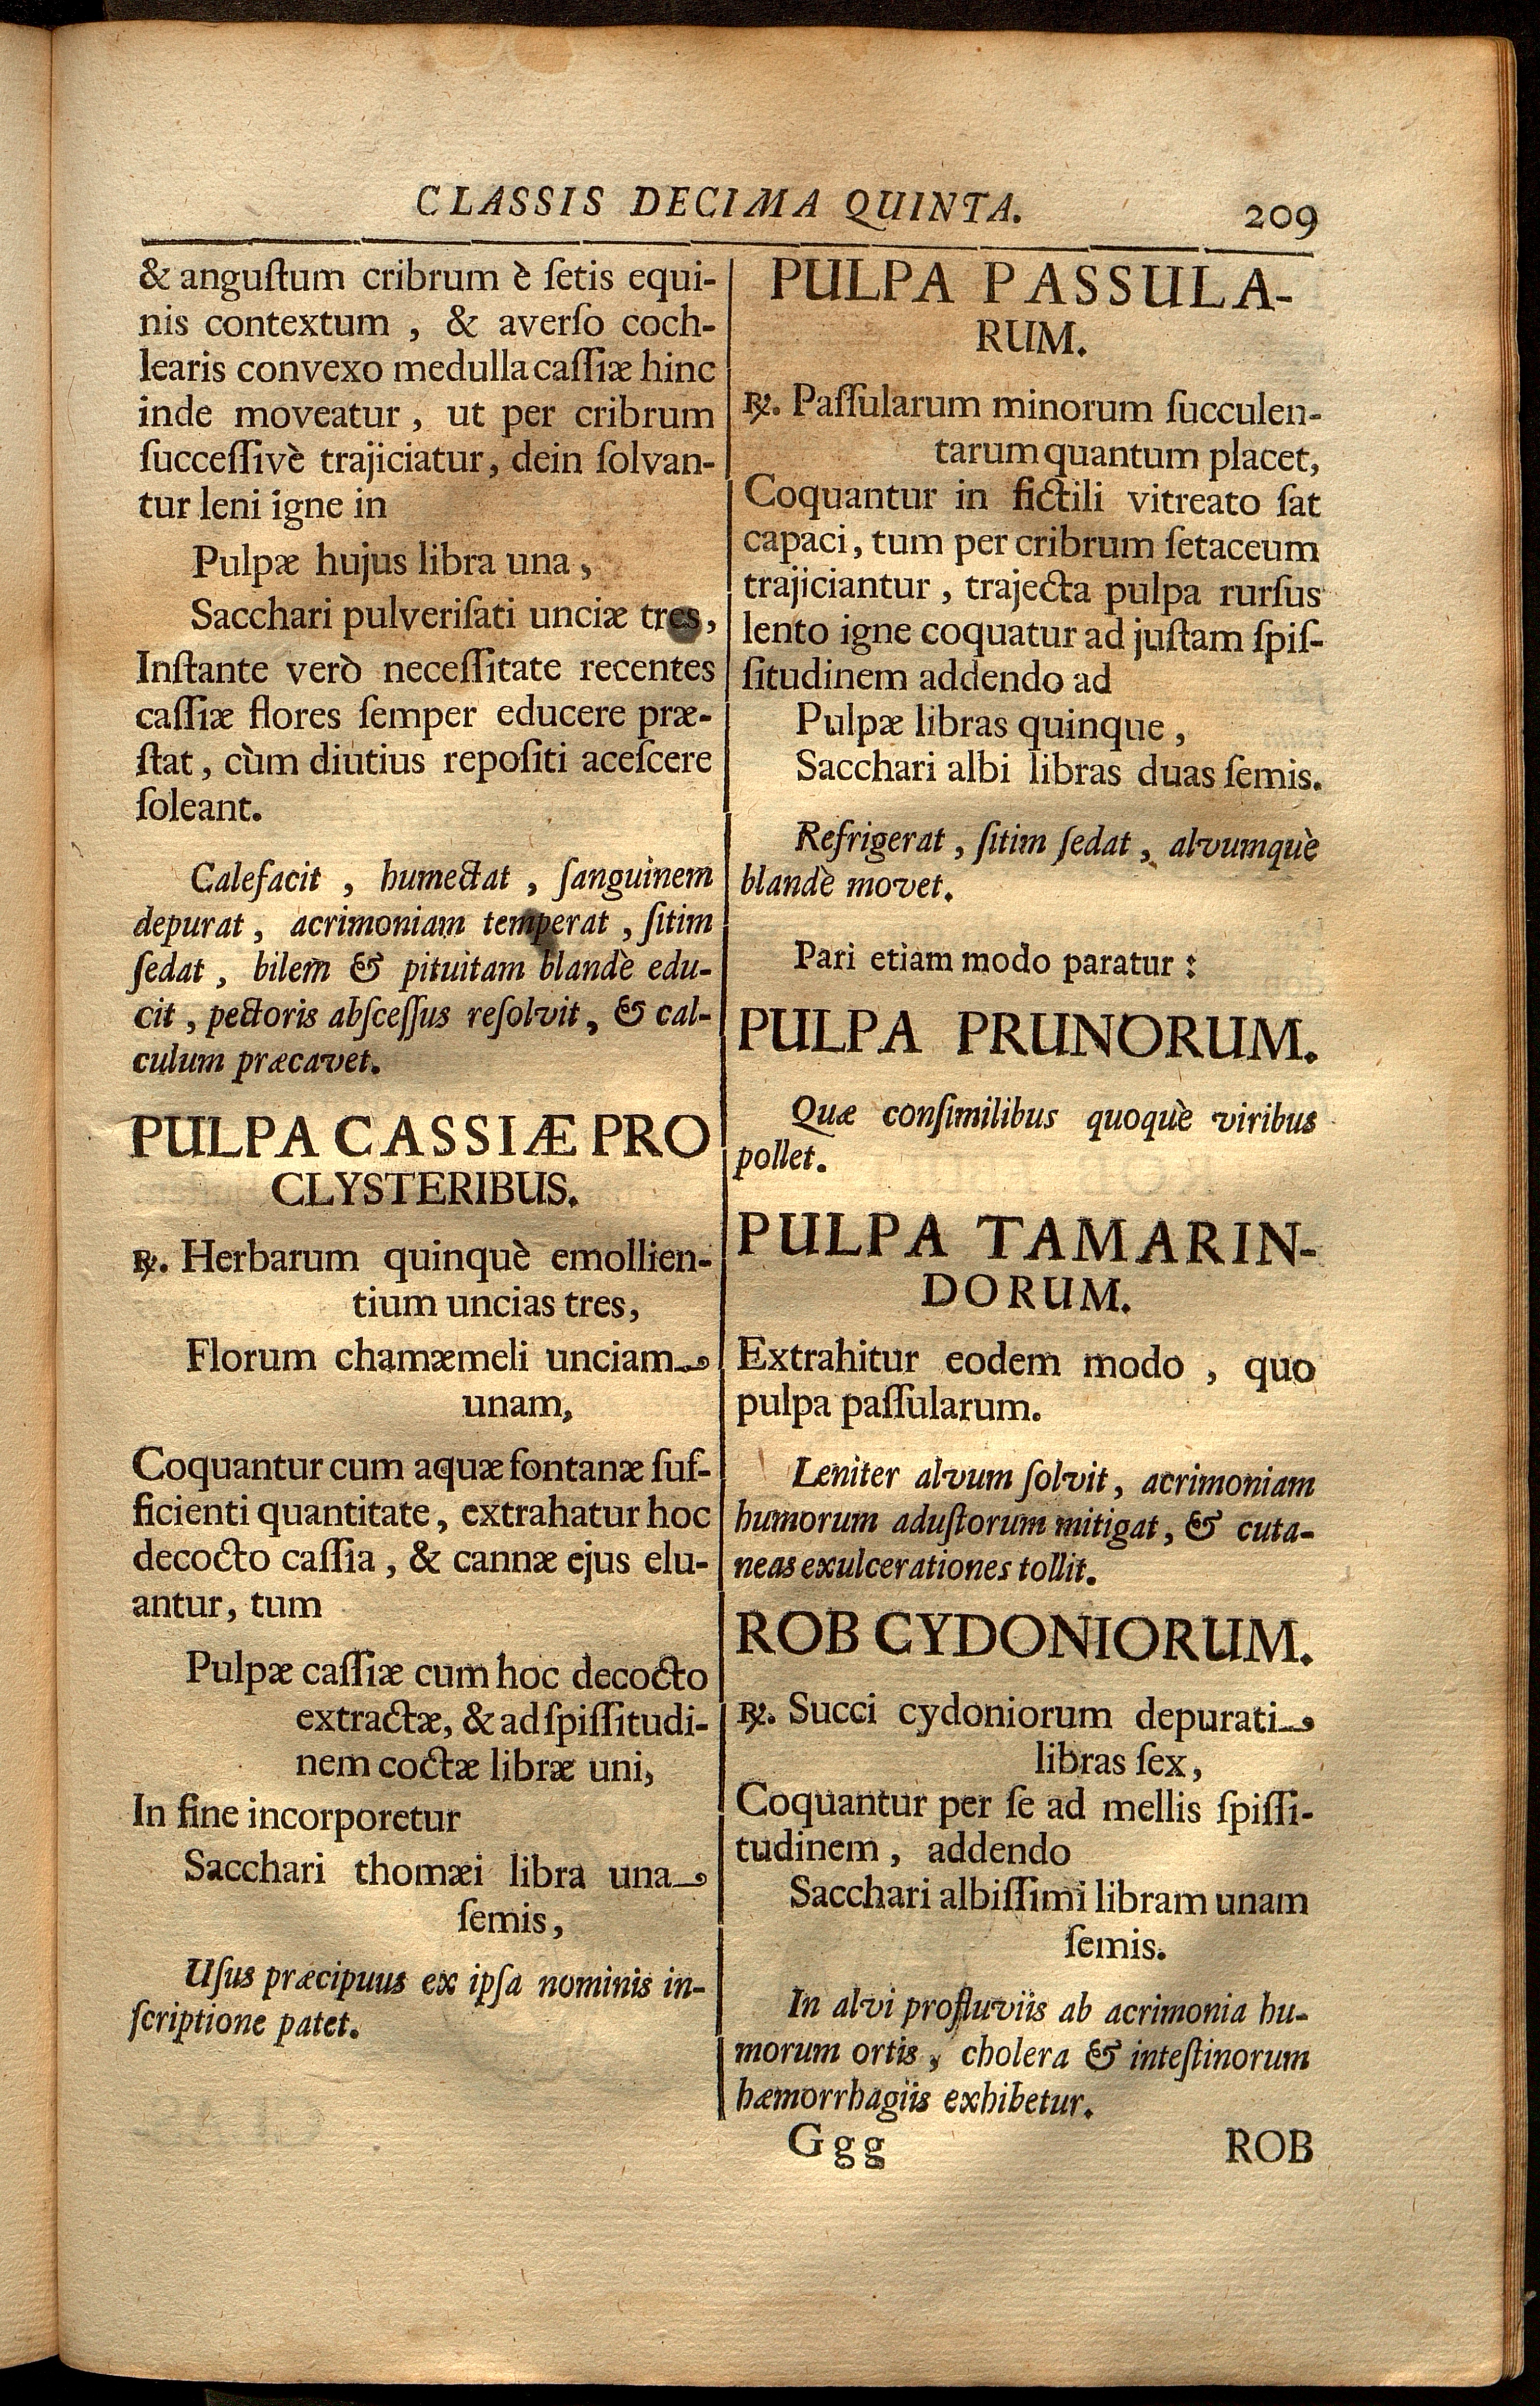 CLASSIS DECIMA QUINTA. 209
& anguſtum cribrum è ſetis equi-
nis contextum , & averſo coch-
learis convexo medulla caſſiæ hinc
inde moveatur , ut per cribrum
ſucceſſivè trajiciatur, dein ſolvan-
tur leni igne in
Pulpæ hujus libra una ,
Sacchari pulveriſati unciæ tres,
Inſtante verò neceſſitate recentes
caſſiæ flores ſemper educere præ-
ſtat , cùm diutius repoſiti aceſcere
ſoleant.
Calefacit , humectat , ſanguinem
depurat , acrimoniam temperat , ſitim
ſedat , bilem & pituitam blandè edu-
cit , pectoris abſceſſus reſolvit , & cal-
culum præcavet.
PULPA CASSIÆ PRO
CLYSTERIBUS.
℞. Herbarum quinquè emollien-
tium uncias tres,
Florum chamæmeli unciam
unam,
Coquantur cum aquæ fontanæ ſuf-
ficienti quantitate, extrahatur hoc
decocto caſſia , & cannæ ejus elu-
antur, tum
Pulpæ caſſiæ cum hoc decocto
extractæ, & ad ſpiſſitudi-
nem coctæ libræ uni,
In fine incorporetur
Sacchari thomæi libra una
ſemis,
Uſus præcipuus ex ipſa nominis in-
ſcriptione patet.
PULPA PASSULA-
RUM.
℞. Paſſularum minorum ſucculen-
tarum quantum placet,
Coquantur in fictili vitreato ſat
capaci, tum per cribrum ſetaceum
trajiciantur , trajecta pulpa rurſus
lento igne coquatur ad juſtam ſpiſ-
ſitudinem addendo ad
Pulpæ libras quinque ,
Sacchari albi libras duas ſemis.
Refrigerat , ſitim ſedat , alvumquè
blandè movet.
Pari etiam modo paratur :
PULPA PRUNORUM.
Quæ conſimilibus quoquè viribus
pollet.
PULPA TAMARIN-
DORUM.
Extrahitur eodem modo , quo
pulpa paſſularum.
Leniter alvum ſolvit , acrimoniam
humorum aduſtorum mitigat, & cuta-
neas exulcerationes tollit.
ROB CYDONIORUM.
℞. Succi cydoniorum depurati
libras ſex,
Coquantur per ſe ad mellis ſpiſſi-
tudinem , addendo
Sacchari albiſſimi libram unam
ſemis.
In alvi profluviis ab acrimonia hu-
morum ortis , cholera & inteſtinorum
hæmorrhagiis exhibetur.
Ggg ROB